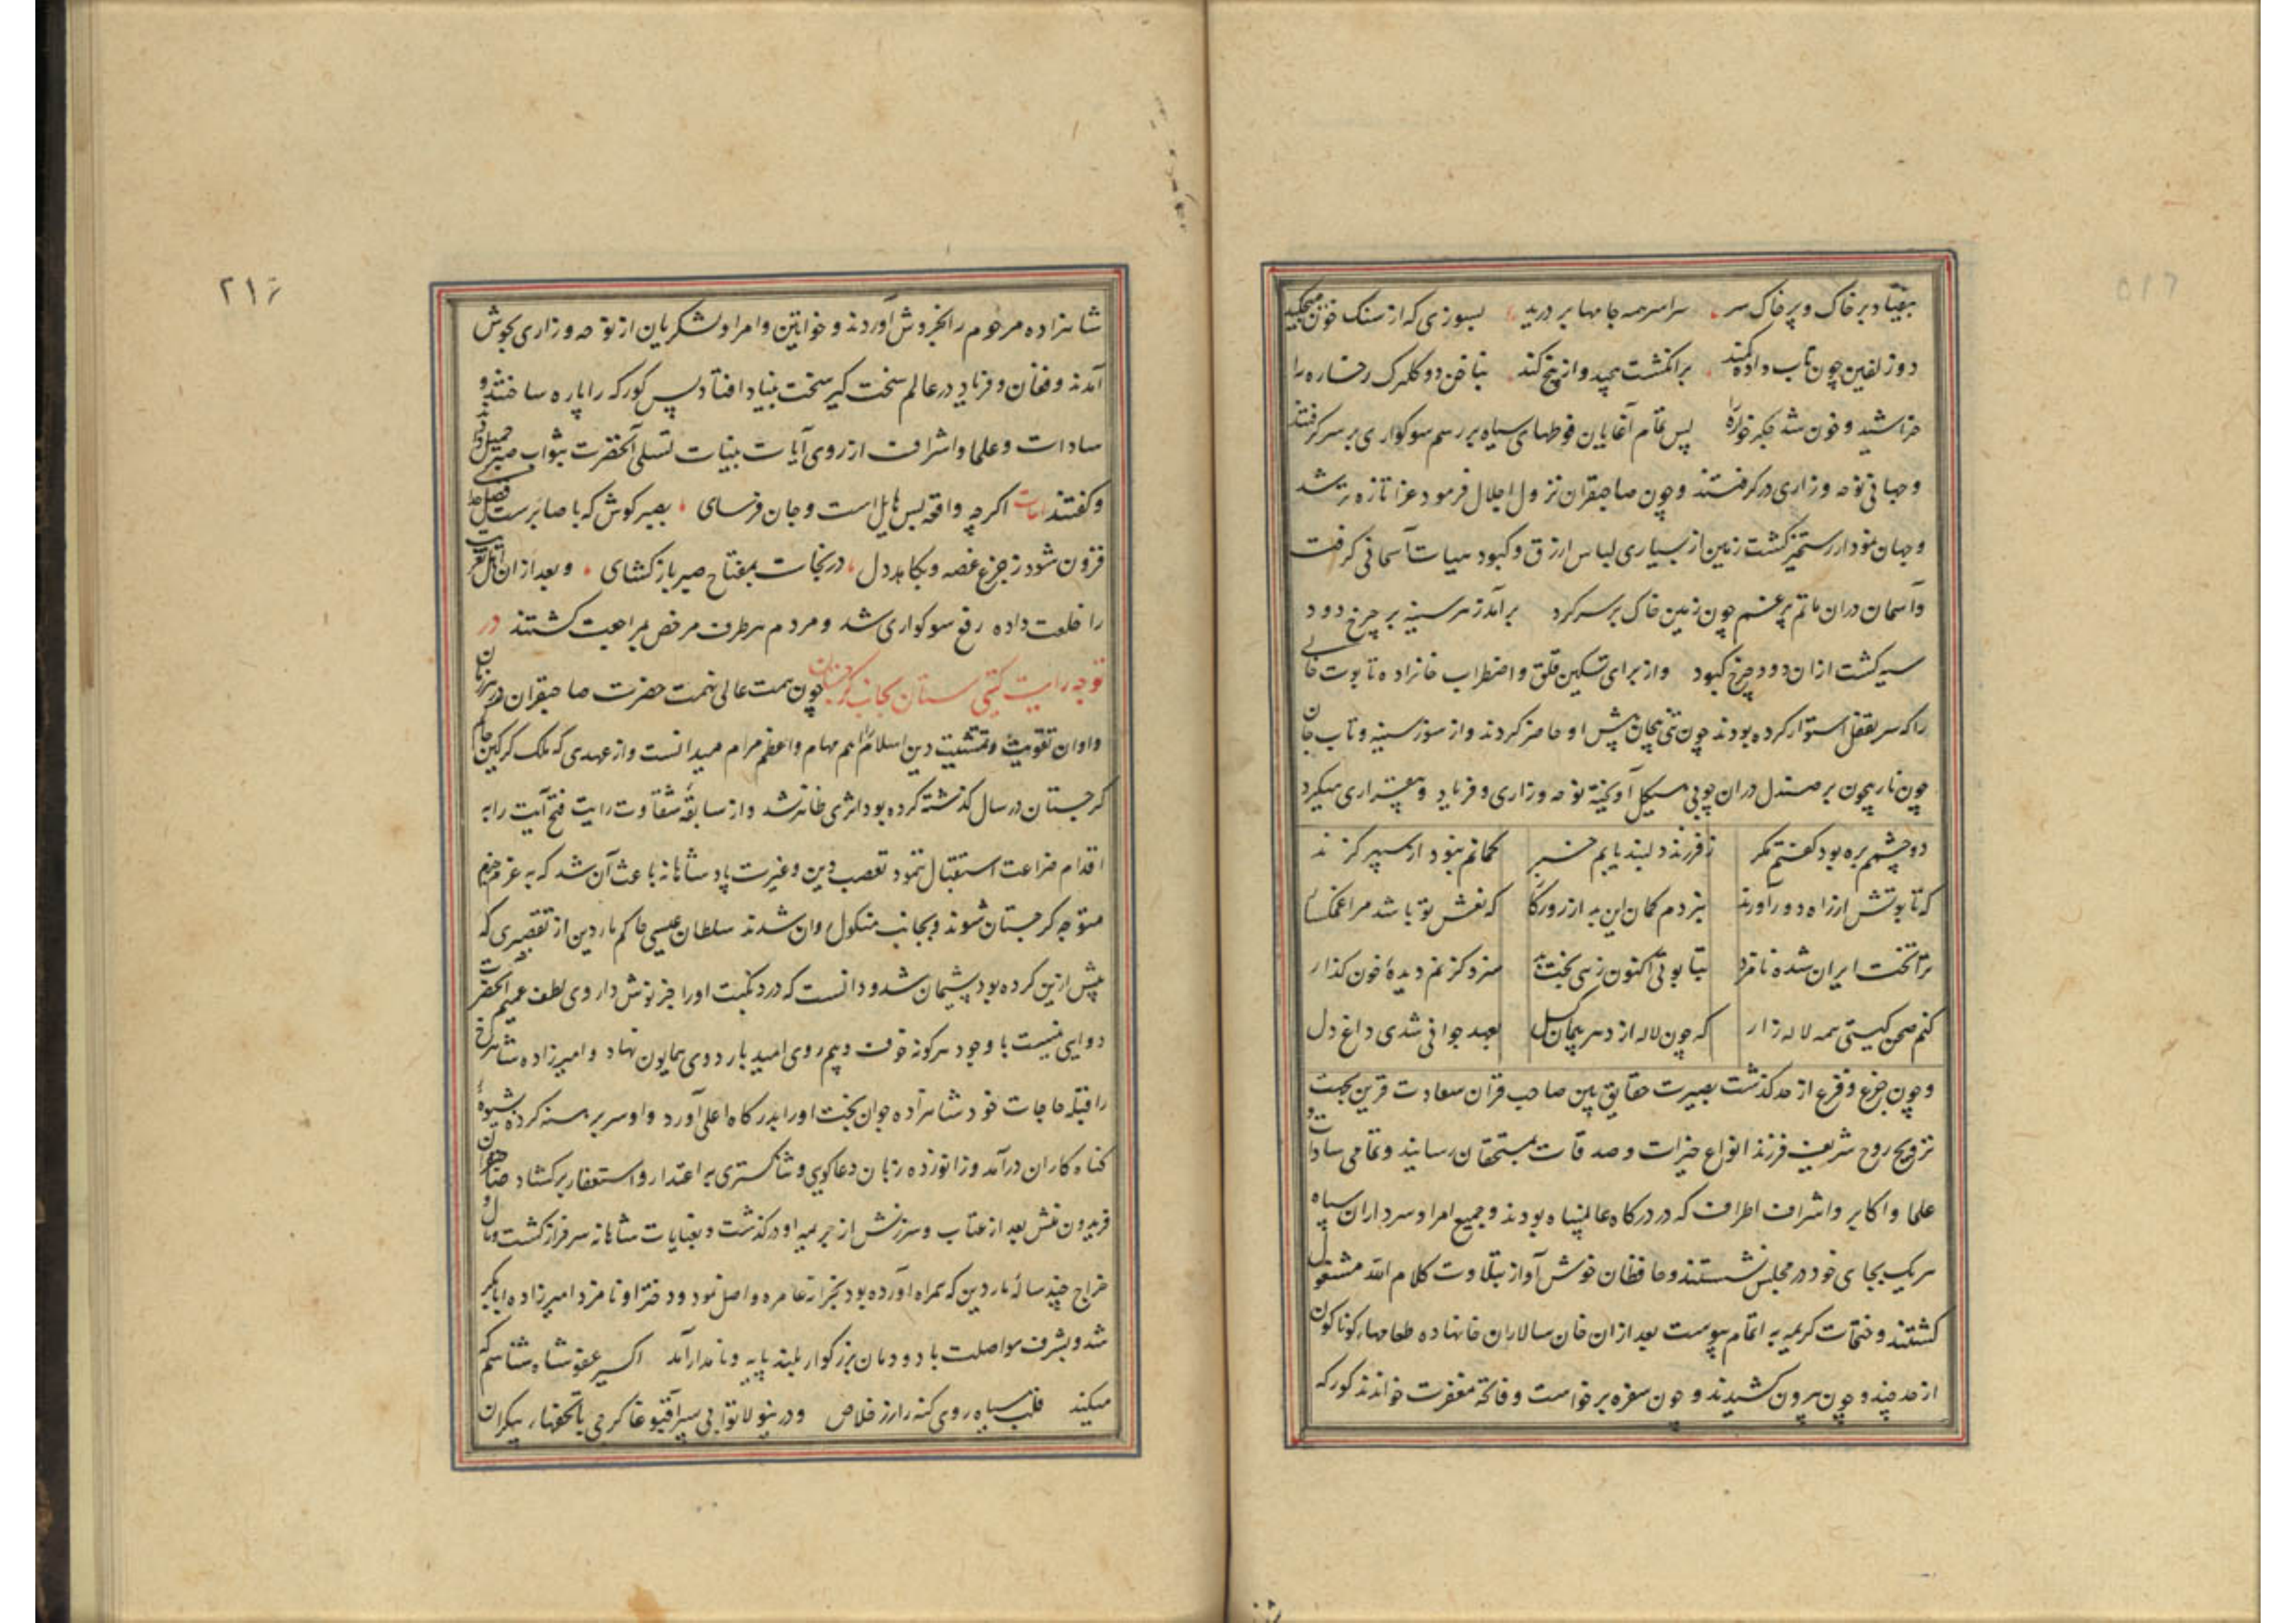 بیفتاد بر خاک و پر خاک سر سراسر همه جامها بر درید بسوزی که از سنک خون میچکید
دو زلفین چون تاب داده کمند بر انکشت پیچید و از بیخ کند بناخن دو کلبرک رخساره را
خراشید و خون شد جکر خواره پس تمام آغایان فوطهای سیاه بر رسم سوکواری بر سر کرفتند
و جهانی نوحه و زاری در کرفتند و چون صاحبقران نزول اجلال فرمود عزا تازه تر شد
و جهان نمودار رستخیز کشت زمین از بسیاری لباس ازرق و کبود هیات آسمانی کرفت
و آسمان دران ماتم پر غم چون زمین خاک بر سر کرد برآمد ز هر سینه بر چرخ دود
سیه کشت ازان دود چرخ کبود و از برای تسکین قلق و اضطراب خانزاده تابوت خالی
را که سر بقفل استوار کرده بودند چون تنی بیجان پیش او حاضر کردند و از سوز سینه و تاب جان
چون نار پیچون بر صندل دران چوبی هیکل آویخته نوحه و زاری و فریاد و بیقراری میکرد
دو چشمم بره بود کفتم مکر ز فرزند دلبند یابم خبر کمانم نبود از سپهر کزند
که تابوتش از راه دور آورند نبردم کمان این به از روزکار که نعش تو باشد مرا غمکسار
ترا تخت ایران شده نامزد بتابوتی اکنون ز بی بخت بد سزد کز غم دیدۀ خون کذار
کنم صحن کیتی همه لاله زار که چون لاله از دهر پیمان کسل بعهد جوانی شدی داغ دل
و چون جزع و فزع از حد کذشت بصیرت حقایق بین صاحب قران سعادت قرین بجهت
ترویح روح شریف فرزند انواع خیرات و صدقات بمستحقان رسانید و تمامی سادات و
علما و اکابر و اشراف اطراف که در درکاه عالمپناه بودند و جمیع امرا و سرداران سپاه
هر یک بجای خود در مجلس نشستند و حافظان خوش آواز بتلاوت کلام الله مشغول
کشتند و ختمات کریمه به اتمام پیوست بعد ازان خان سالاران خانها ده طعامهای کوناکون
از حد چند و چون بیرون کشیدند و چون سفره برخواست و فاتحه مغفرت خواندند کورکه
۲۱۶
شاهزاده مرحوم را بخروش آوردند و خواتین و امرا و لشکریان از نوحه و زاری بجوش
آمدند و فغان و فریاد در عالم سخت کیر سخت بنیاد افتاد پس کورکه را پاره ساختند و
سادات و علما و اشراف از روی آیات بینات تسلی آنحضرت بثواب صبر جمیل
و کفتند ابیات اکرچه واقعه بس هایل است و جان فرسای بصبر کوش که با صابرست فضل خدای
فزون شود ز جزع غصه و بکاهد دل در نجات بمفتاح صبر باز کشای و بعد ازان اهل تعزیت
را خلعت داده رفع سوکواری شد و مردم هر طرف مرخص بمراجعت کشتند در
توجه رایت کیتی ستان بجانب کرجستان چون همت عالی نهمت حضرت صاحبقران در هر زمان
و اوان تقویت و تمشیت دین اسلام را اهم مهام و اعظم مرام میدانست و از عهدی که ملک کرکین حاکم
کرجستان در سال کذشته کرده بود اثری ظاهر نشد و از سابقۀ شقاوت رایت فتح آیت را به
اقدام ضراعت استقبال ننمود تعصب دین و غیرت پادشاهانه باعث آن شد که به عزم جزم
متوجه کرجستان شوند و بجانب منکول وان شدند سلطان عیسی حاکم ماردین از تقصیری که
پیش ازین کرده بود پشیمان شد و دانست که درد نکبت او را جز نوش داروی لطف عمیم آنحضرت
دوایی نیست با وجود هر کونه خوف و بیم روی امید باردوی همایون نهاد و امیرزاده شاهرخ
را قبله حاجات خود شاهزاده جوان بخت او را بدرکاه اعلی آورد و او سر برهنه کرده بشیوۀ
کناه کاران درآمد و زانو زده زبان دعاکویی و ثناکستری به اعتدار و استغفار برکشاد صاحبقران
فریدون منش بعد از عتاب و سرزنش از جریمه او درکذشت و بعنایات شاهانه سرفراز کشت و مال و
خراج چند سالۀ ماردین که همراه آورده بود بخزانه عامره واصل نمود و دختر او نامزد امیرزاده ابابکر
شد و بشرف مواصلت با دودمان بزرکوار بلند پایه و نامدار آمد اکسیر عفو شاه شناسم که
میکند قلب سیاه روی کنه را زر خلاص و درینولا توابی سپر آقبوغا کرجی با تحفهای بیکران